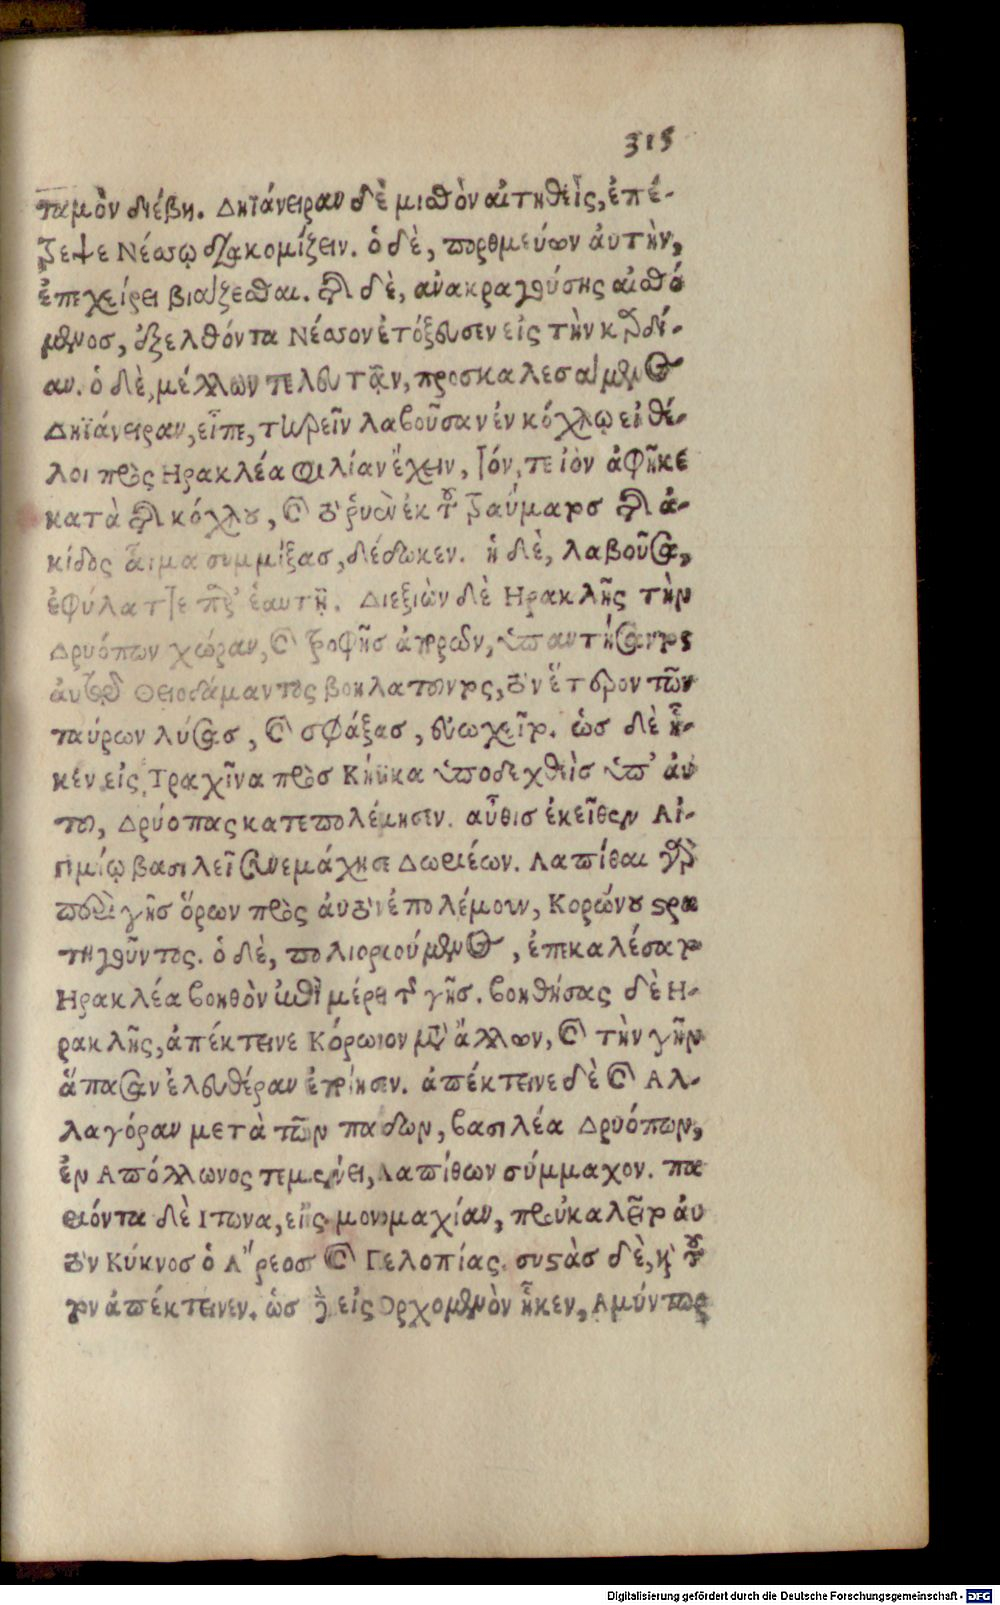 315
ταμὸν διέβη. Δηϊάνειραν δὲ μισθὸν αἰτηθεὶς, ἐπέ-
τρεψε Νέσσῳ διακομίζειν. ὁ δὲ, πορθμεύων ἀυτὴν,
ἐπεχείρει βιάζεσθαι. τῆς δὲ, ἀνακραγούσης αἰσθό
μενος, ἐξελθόντα Νέσσον ἐτόξευσεν εἰς τὴν καρδί-
αν. ὁ δὲ, μέλλων τελευτᾶν, προσκαλεσάμενος
Δηϊάνειραν, εἶπε, τηρεῖν λαβοῦσαν ἐν κόχλῳ εἰ θέ-
λοι πρὸς Ηρακλέα φιλίαν ἔχειν, τόν, τε ἰὸν ἀφῆκε
κατὰ τῆς κόχλου, καὶ τὸ ῥυὲν ἐκ τοῦ τραύματος τῆς ἀ-
κίδος αἷμα συμμίξας, δέδωκεν. ἡ δὲ, λαβοῦσα,
ἐφύλαττε παρ’ ἑαυτῇ. Διεξιὼν δὲ Ηρακλῆς τὴν
Δρυόπων χώραν, καὶ τροφῆς ἀπορῶν, ὑπαντήσαντος
ἀυτοῦ Θειοδάμαντος βοηλατοῦντος, τὸν ἕτερον τῶν
ταύρων λύσας, καὶ σφάξας, εὐωχεῖτο. ὡς δὲ ἧ-
κεν εἰς Τραχῖνα πρὸς Κήϋκα ὑποδεχθεὶς ὑπ’ ἀυ
τοῦ, Δρύοπας κατεπολέμησεν. αὖθις ἐκεῖθεν Αἰ-
γιμίῳ βασιλεῖ συνεμάχησε Δωριέων. Λαπίθαι γὰρ
περὶ γῆς ὅρων πρὸς ἀυτὸν ἐπολέμουν, Κορώνου στρα
τηγοῦντος. ὁ δὲ, πολιορκούμενος, ἐπεκαλέσατο
Ηρακλέα βοηθὸν ἐπὶ μέρει τῆς γῆς. βοηθήσας δὲ Η-
ρακλῆς, ἀπέκτεινε Κόρωνον μετ’ ἄλλων, καὶ τὴν γῆν
ἅπασαν ἐλευθέραν ἐποίησεν. ἀπέκτεινε δὲ καὶ Αλ-
λαγόραν μετὰ τῶν παίδων, βασιλέα Δρυόπων,
ἐν Απόλλωνος τεμένει, Λαπίθων σύμμαχον. πα
ριόντα δὲ Ιτωνα, εἰς μονομαχίαν, προὐκαλεῖτο ἀυ
τὸν Κύκνος ὁ Α῎ρεος καὶ Πελοπίας. συστὰς δὲ, καὶ τοῦ
τον ἀπέκτεινεν. ὡς δὲ εἰς Ορχομενὸν ἧκεν, Αμύντωρ
Digitalisierung gefördert durch die Deutsche Forschungsgemeinschaft - DFG